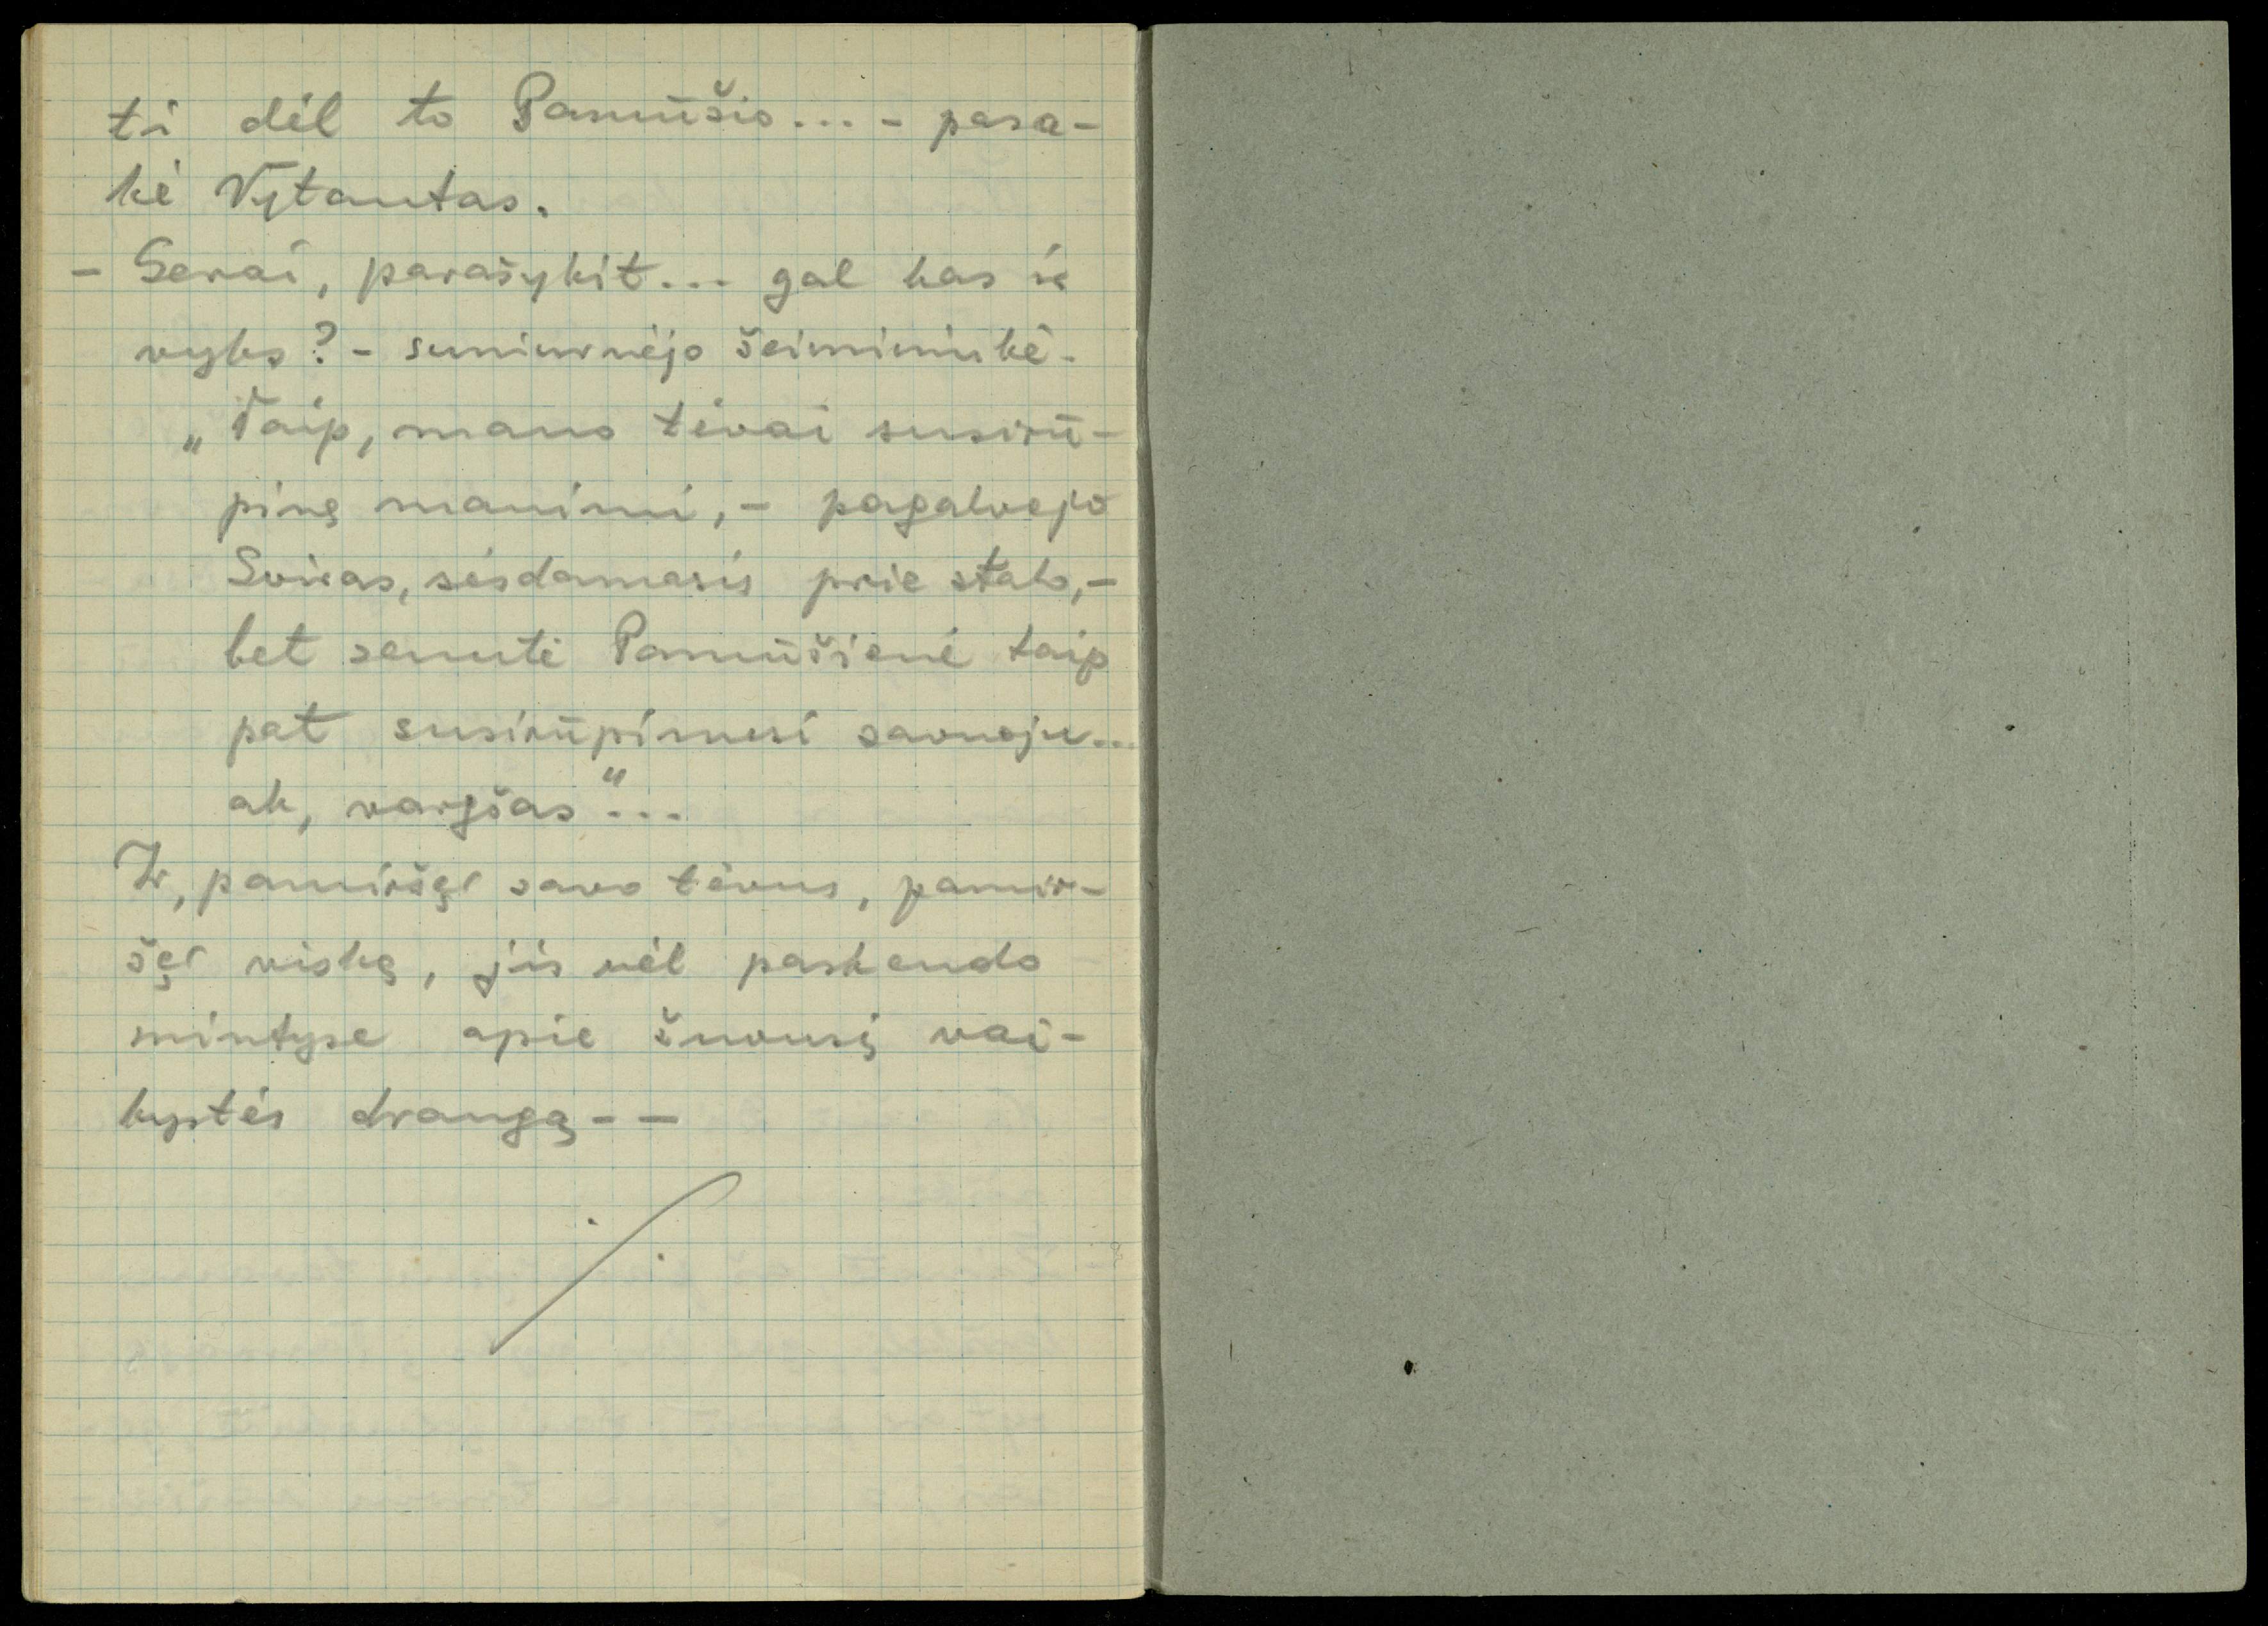 ti dėl to Pamūšio... - pasa-
kė Vytautas.
- Gerai, parašykit... gal kas iš
vyks? - suniurnėjo šeimininkė.
„Taip, mano tėvai susirū-
pinę manimi, - pagalvojo
Sviras, sėsdamasis prie stalo, -
bet senutė Pamūšienė taip
pat susirūpinusi savuoju...
ak, vargšas“...
Ir, pamiršęs savo tėvus, pamir-
šęs viską, jis vėl paskendo
mintyse apie žuvusį vai-
kystės draugą - -